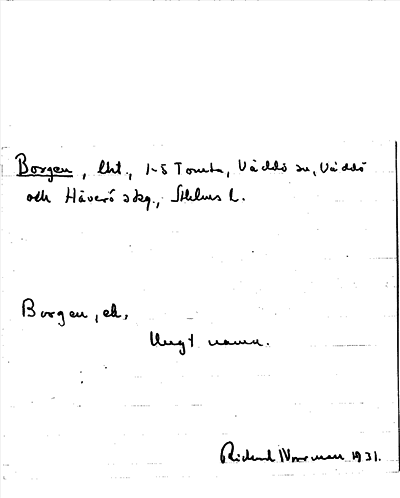 Borgen, lht., 1-5 Tomta, Väddö sn, Väddö
och Häverö skg., Sthlms l.
Borgen, eh,
Ungt namn.
Rickard Norrman 1931.